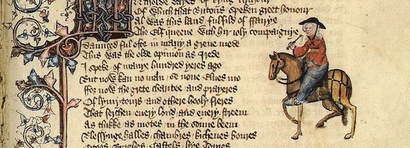 N tholde dayes of kyng Arthour
Of which that Britons speken greet honour
Al was this land fulfild of fairye
The elf queene with hir ioly compaignye
Daunced ful ofte in many a grene mede
This was the olde opinion as I rede
I speke of manye hundred yeres ago
But now kan no man se none Elues mo
ffor now the grete charitee and prayeres
Of lymytours and othere hooly freres
That serchen euery lond and euery streem
As thikke as motes in the sonne beem
Blessynge halles chambres kichenes boures